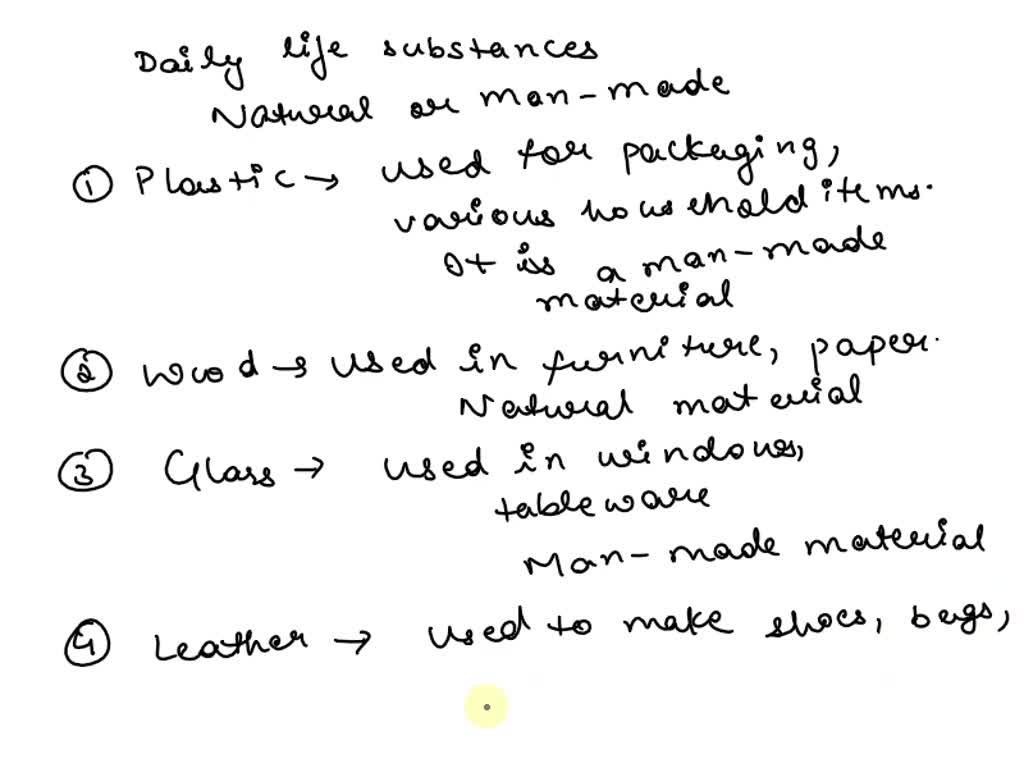 Daily life substances
Natural or man-made
① Plastic → used for packaging,
various household items.
It is a man-made
material
② Wood → used in furniture, paper.
Natural material
③ Glass → used in windows,
tableware
Man-made material
④ Leather → used to make shoes, bags,